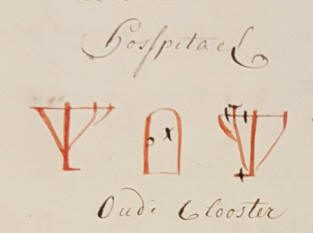 Hosspitael
Oudi Clooster